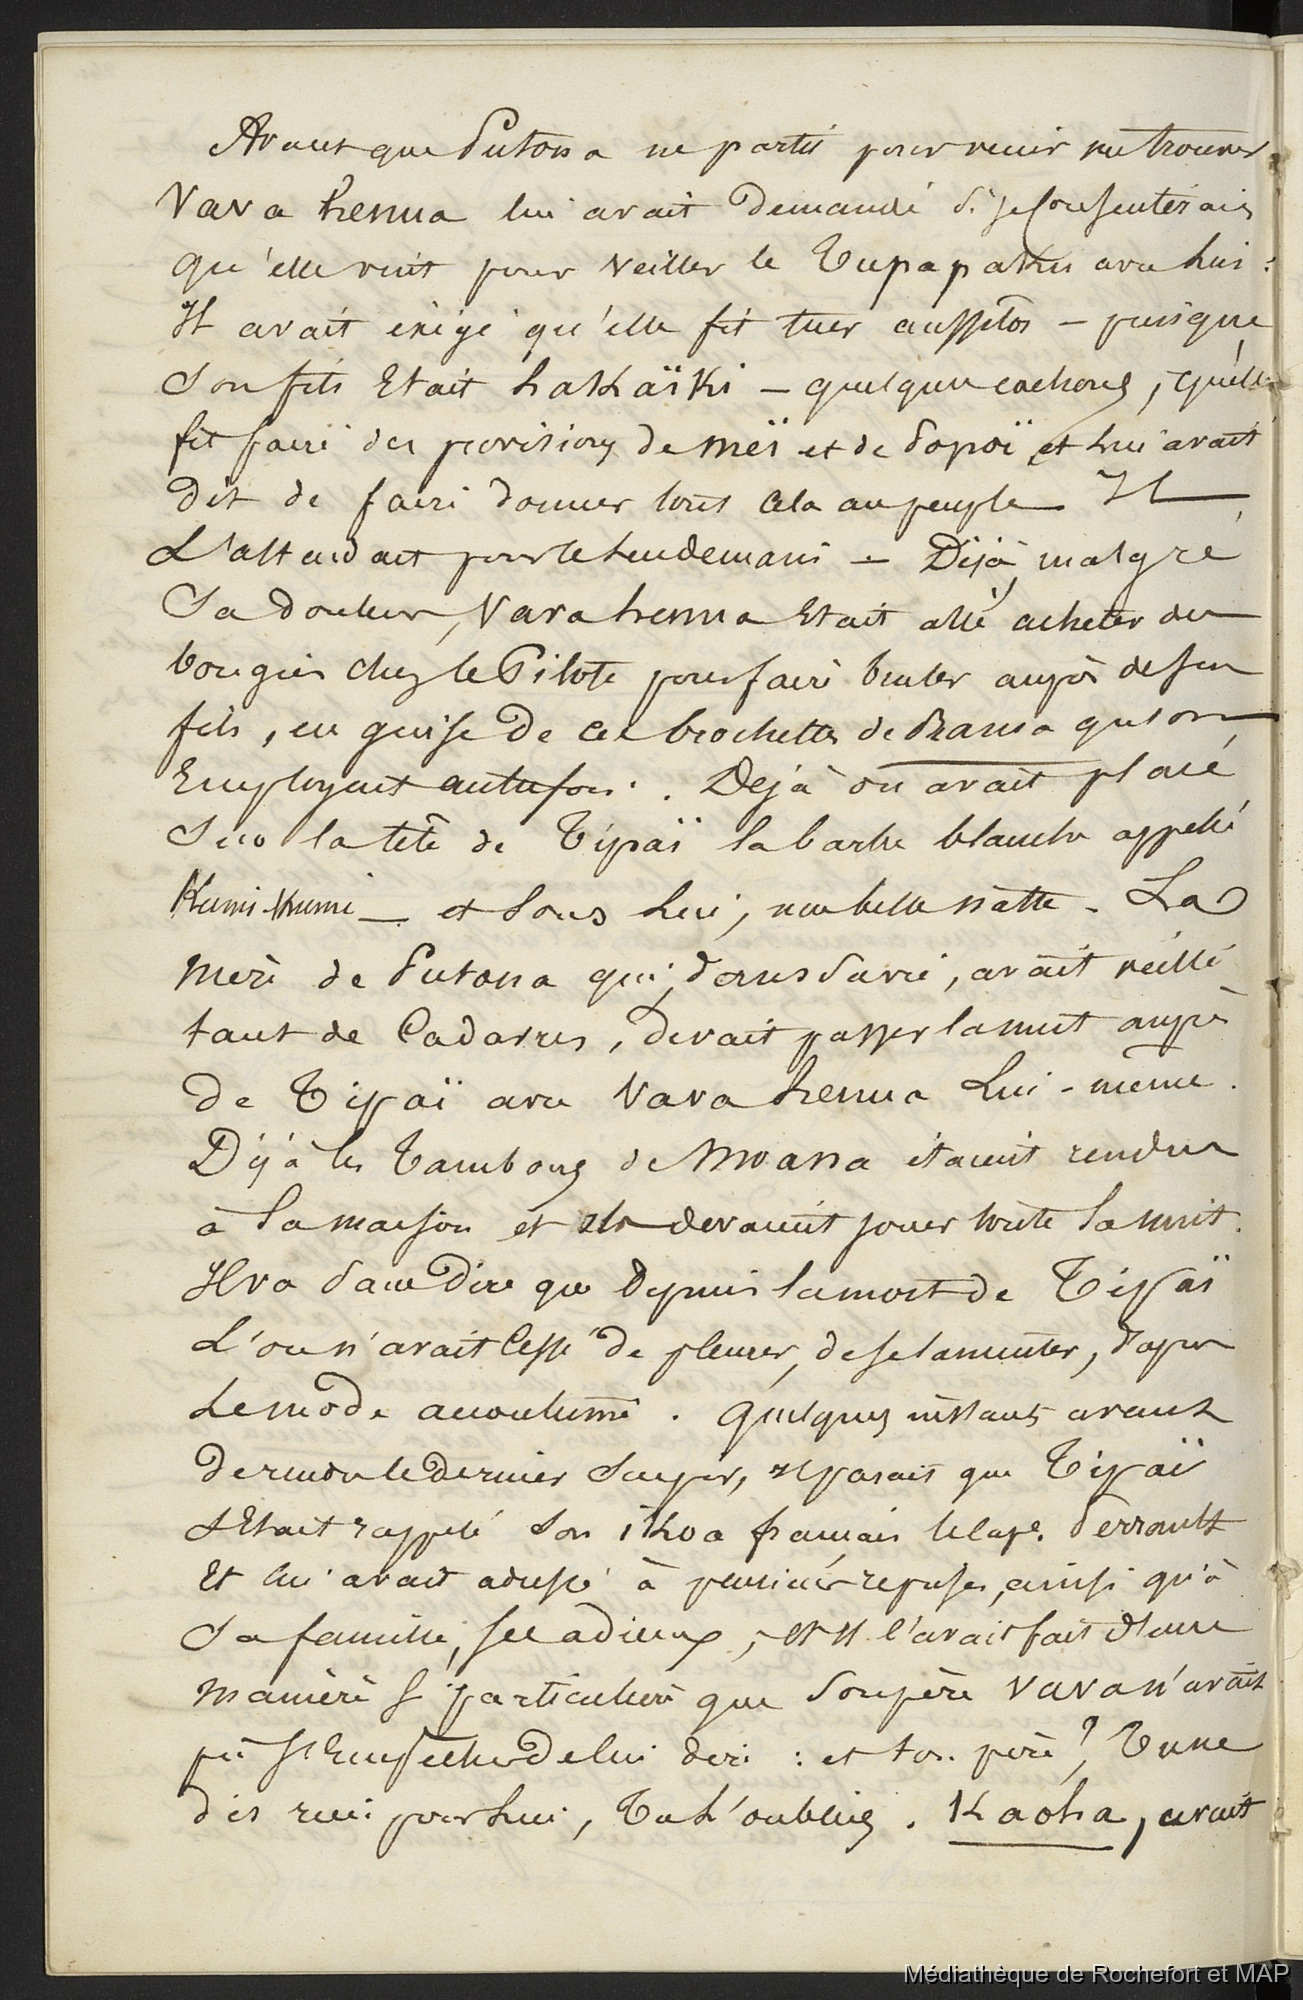 Avant que Putona ne partit pour venir me trouver
Vavahenua lui avait demandé si je consentirais
qu'elle vint pour veiller le Tupapaku avec lui :
Il avait exigé qu'elle fit tuer aussitôt — puisque
Son fils Etait hakaïki — quelques cochons, qu'elle
fit faire des provisions de meï et de Popoï et lui avait
dit de faire donner tout cela au peuple. Il
L'attendait pour le lendemain — Déjà, malgré
Sa douleur, Vavahenua Etait allé acheter des
bougies chez le Pilote pour faire bruler auprès de son
fils, en guise de ces brochettes de Rama qu'on
Employait autrefois. Déjà on avait placé
Sur la tête de Tipaï la barbe blanche appelée
Kumi Kumi — et Sous Lui, une belle natte. La
Mère de Putona qui, dans sa vie, avait veillé
tant de Cadavres, devait passer la nuit auprès
de Tipaï avec Vavahenua Lui-même.
Déjà les Tambours de Moana étaient rendus
à la maison et ils devaient jouer toute la nuit.
Il va Sans Dire que Depuis la mort de Tipaï
L'on n'avait Cessé de pleurer, de se lamenter, d'après
Le mode accoutumé. Quelques instants avant
de rendre le dernier Soupir, il parait que Tipaï
S'Etait rappelé Son ikoa français le Cap.e Perrault
Et lui avait adressé à plusieurs reprises, ainsi qu'à
Sa famille, ses adieux, et il l'avait fait d'une
Manière si particulière que Son père Vava n'avait
pû s'Empêcher de lui dire : et ton père ? Tu ne
dis rien pour lui, Tu L'oublies. Kaoha, avait
Médiathèque de Rochefort et MAP